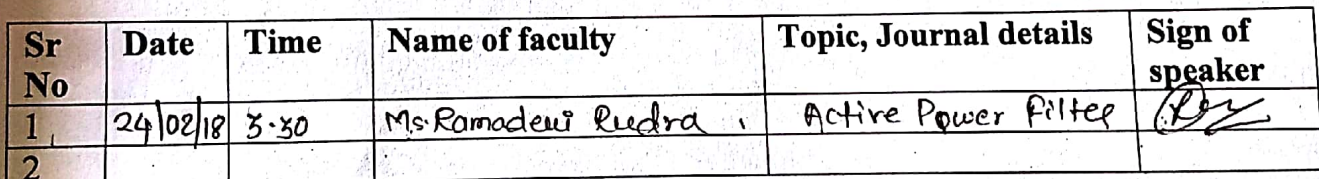 Sr No Date Time Name of faculty Topic, Journal details Sign of speaker
1 24/02/18 3.30 Ms. Ramadevi Rudra Active Power Filter
2